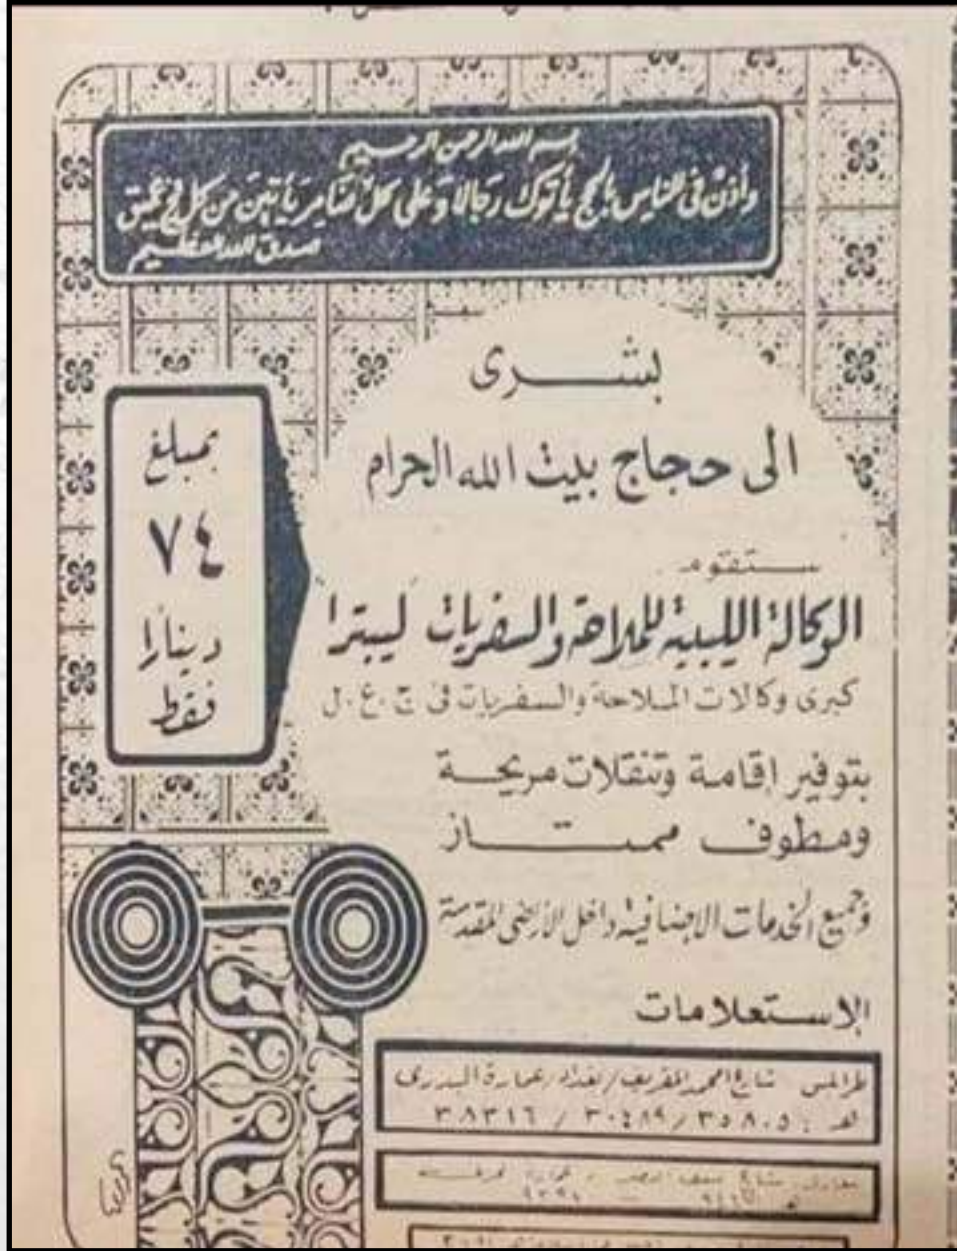 بسم الله الرحمن الرحيم
وأذن في الناس بالحج يأتوك رجالا وعلى كل ضامر يأتين من كل فج عميق
صدق الله العظيم
بشرى
الى حجاج بيت الله الحرام
ستقوم
الوكالة الليبية للملاحة والسفريات ليبترا
كبرى وكالات الملاحة والسفريات فى ج.ع.ل
بتوفير اقامة وتنقلات مريحة
ومطوف ممتاز
وجميع الخدمات الاضافية داخل الأراضى المقدسة
بمبلغ
٧٤
دينارا
فقط
الاستعلامات
طرابلس شارع امحمد المقريف / بغداد / عمارة البدرى
هـ : ٣٥٨٠٥ / ٣٠٤٨٩ / ٣٨٣١٦
شارع